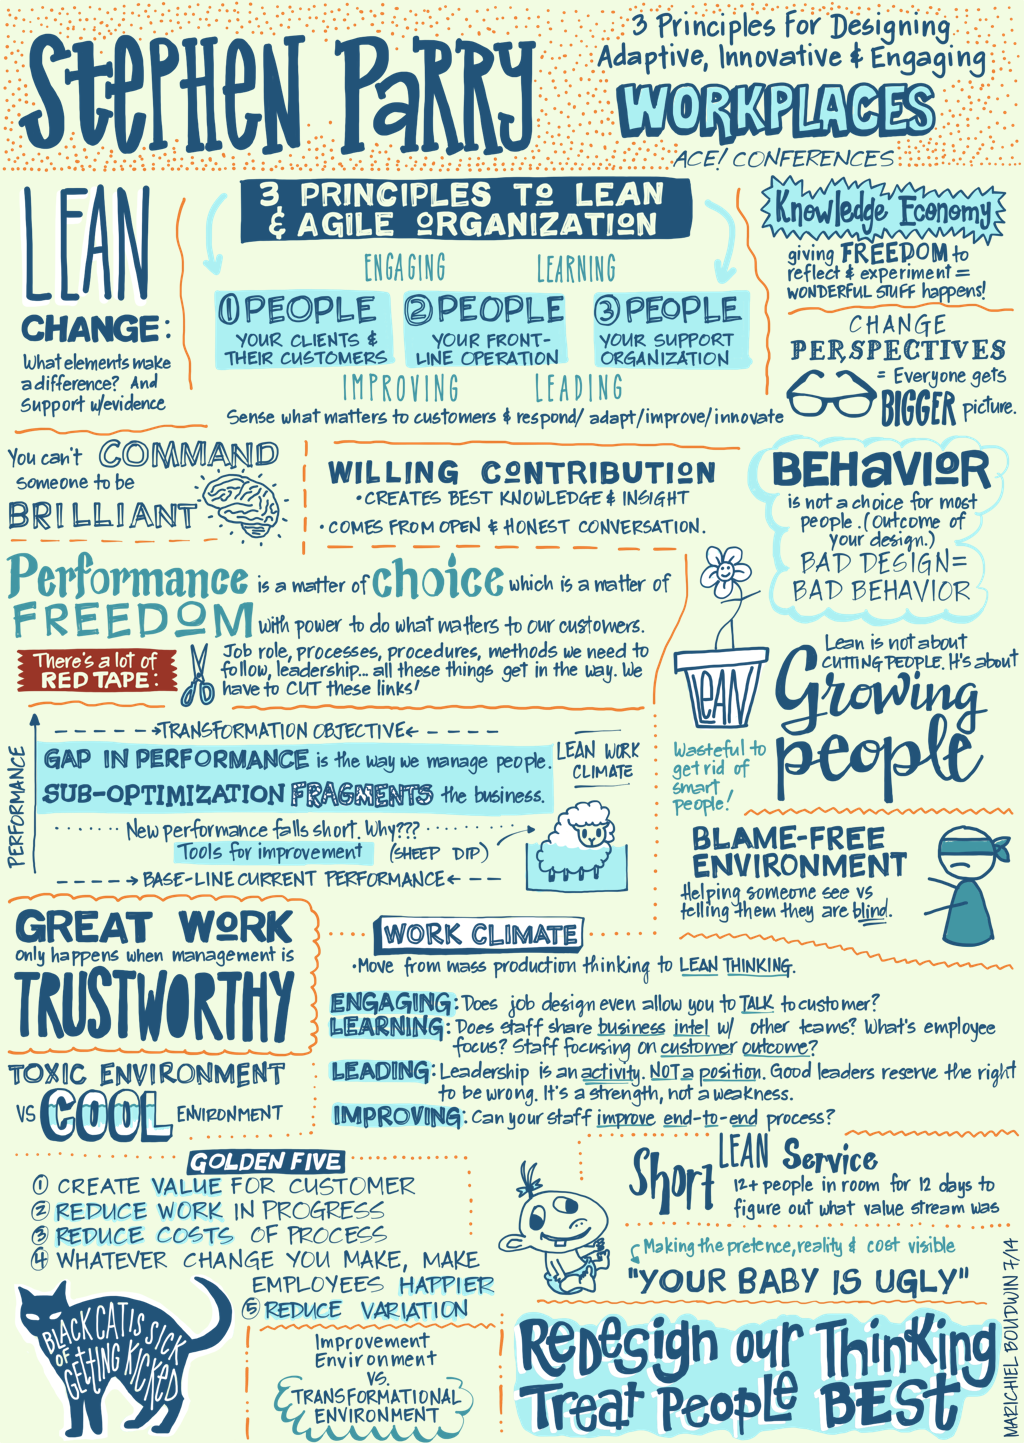 Stephen Parry
3 Principles For Designing
Adaptive, Innovative & Engaging
WORKPLACES
ACE! CONFERENCES
LEAN
CHANGE:
What elements make
a difference? And
Support w/evidence
3 PRINCIPLES TO LEAN
& AGILE ORGANIZATION
ENGAGING LEARNING
① PEOPLE
YOUR CLIENTS &
THEIR CUSTOMERS
② PEOPLE
YOUR FRONT-
LINE OPERATION
③ PEOPLE
YOUR SUPPORT
ORGANIZATION
IMPROVING LEADING
Sense what matters to customers & respond/ adapt/improve/innovate
Knowledge Economy
giving FREEDOM to
reflect & experiment =
WONDERFUL STUFF happens!
CHANGE
PERSPECTIVES
= Everyone gets
BIGGER picture.
You can't COMMAND
someone to be
BRILLIANT
WILLING CONTRIBUTION
• CREATES BEST KNOWLEDGE & INSIGHT
• COMES FROM OPEN & HONEST CONVERSATION.
BEHAVIOR
is not a choice for most
people. (Outcome of
your design.)
BAD DESIGN=
BAD BEHAVIOR
Performance is a matter of choice which is a matter of
FREEDOM with power to do what matters to our customers.
There's a lot of
RED TAPE:
Job role, processes, procedures, methods we need to
follow, leadership... all these things get in the way. We
have to CUT these links!
LEAN
Lean is not about
CUTTING PEOPLE. It's about
Growing
people
Wasteful to
get rid of
smart
people!
PERFORMANCE
TRANSFORMATION OBJECTIVE
GAP IN PERFORMANCE is the way we manage people.
SUB-OPTIMIZATION FRAGMENTS the business.
New performance falls short. Why???
Tools for improvement (SHEEP DIP)
BASE-LINE CURRENT PERFORMANCE
LEAN WORK
CLIMATE
BLAME-FREE
ENVIRONMENT
Helping someone see vs
telling them they are blind.
GREAT WORK
only happens when management is
TRUSTWORTHY
TOXIC ENVIRONMENT
VS COOL ENVIRONMENT
WORK CLIMATE
• Move from mass production thinking to LEAN THINKING.
ENGAGING: Does job design even allow you to TALK to customer?
LEARNING: Does staff share business intel w/ other teams? What's employee
focus? Staff focusing on customer outcome?
LEADING: Leadership is an activity. NOT a position. Good leaders reserve the right
to be wrong. It's a strength, not a weakness.
IMPROVING: Can your staff improve end-to-end process?
GOLDEN FIVE
① CREATE VALUE FOR CUSTOMER
② REDUCE WORK IN PROGRESS
③ REDUCE COSTS OF PROCESS
④ WHATEVER CHANGE YOU MAKE, MAKE
EMPLOYEES HAPPIER
⑤ REDUCE VARIATION
Short LEAN Service
12+ people in room for 12 days to
figure out what value stream was
Making the pretence, reality & cost visible
"YOUR BABY IS UGLY"
BLACK CAT IS SICK
OF GETTING KICKED
Improvement
Environment
VS.
TRANSFORMATIONAL
ENVIRONMENT
Redesign our Thinking
Treat People BEST
MARICHIEL BOUDWIN 7/14